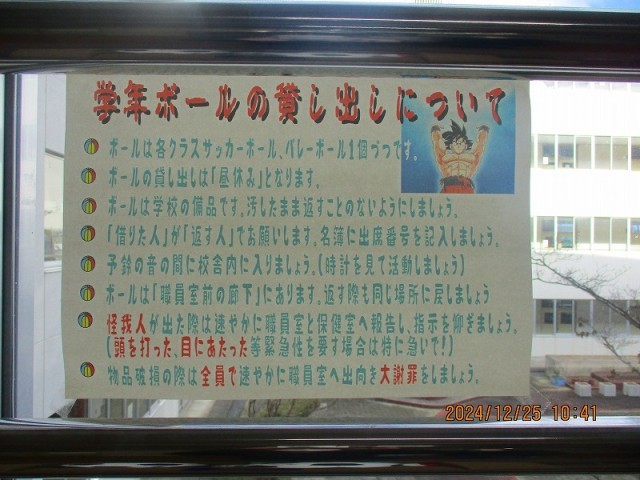 学年ボールの貸し出しについて
ボールは各クラスサッカーボール、バレーボール1個づつです。
ボールの貸し出しは「昼休み」となります。
ボールは学校の備品です。汚したまま返すことのないようにしましょう。
「借りた人」が「返す人」でお願いします。名簿に出席番号を記入しましょう。
予鈴の音の間に校舎内に入りましょう。(時計を見て活動しましょう)
ボールは「職員室前の廊下」にあります。返す際も同じ場所に戻しましょう
怪我人が出た際は速やかに職員室と保健室へ報告し、指示を仰ぎましょう。
(頭を打った、目にあたった等緊急性を要す場合は特に急いで!)
物品破損の際は全員で速やかに職員室へ出向き大謝罪をしましょう。
2024/12/25 10:41